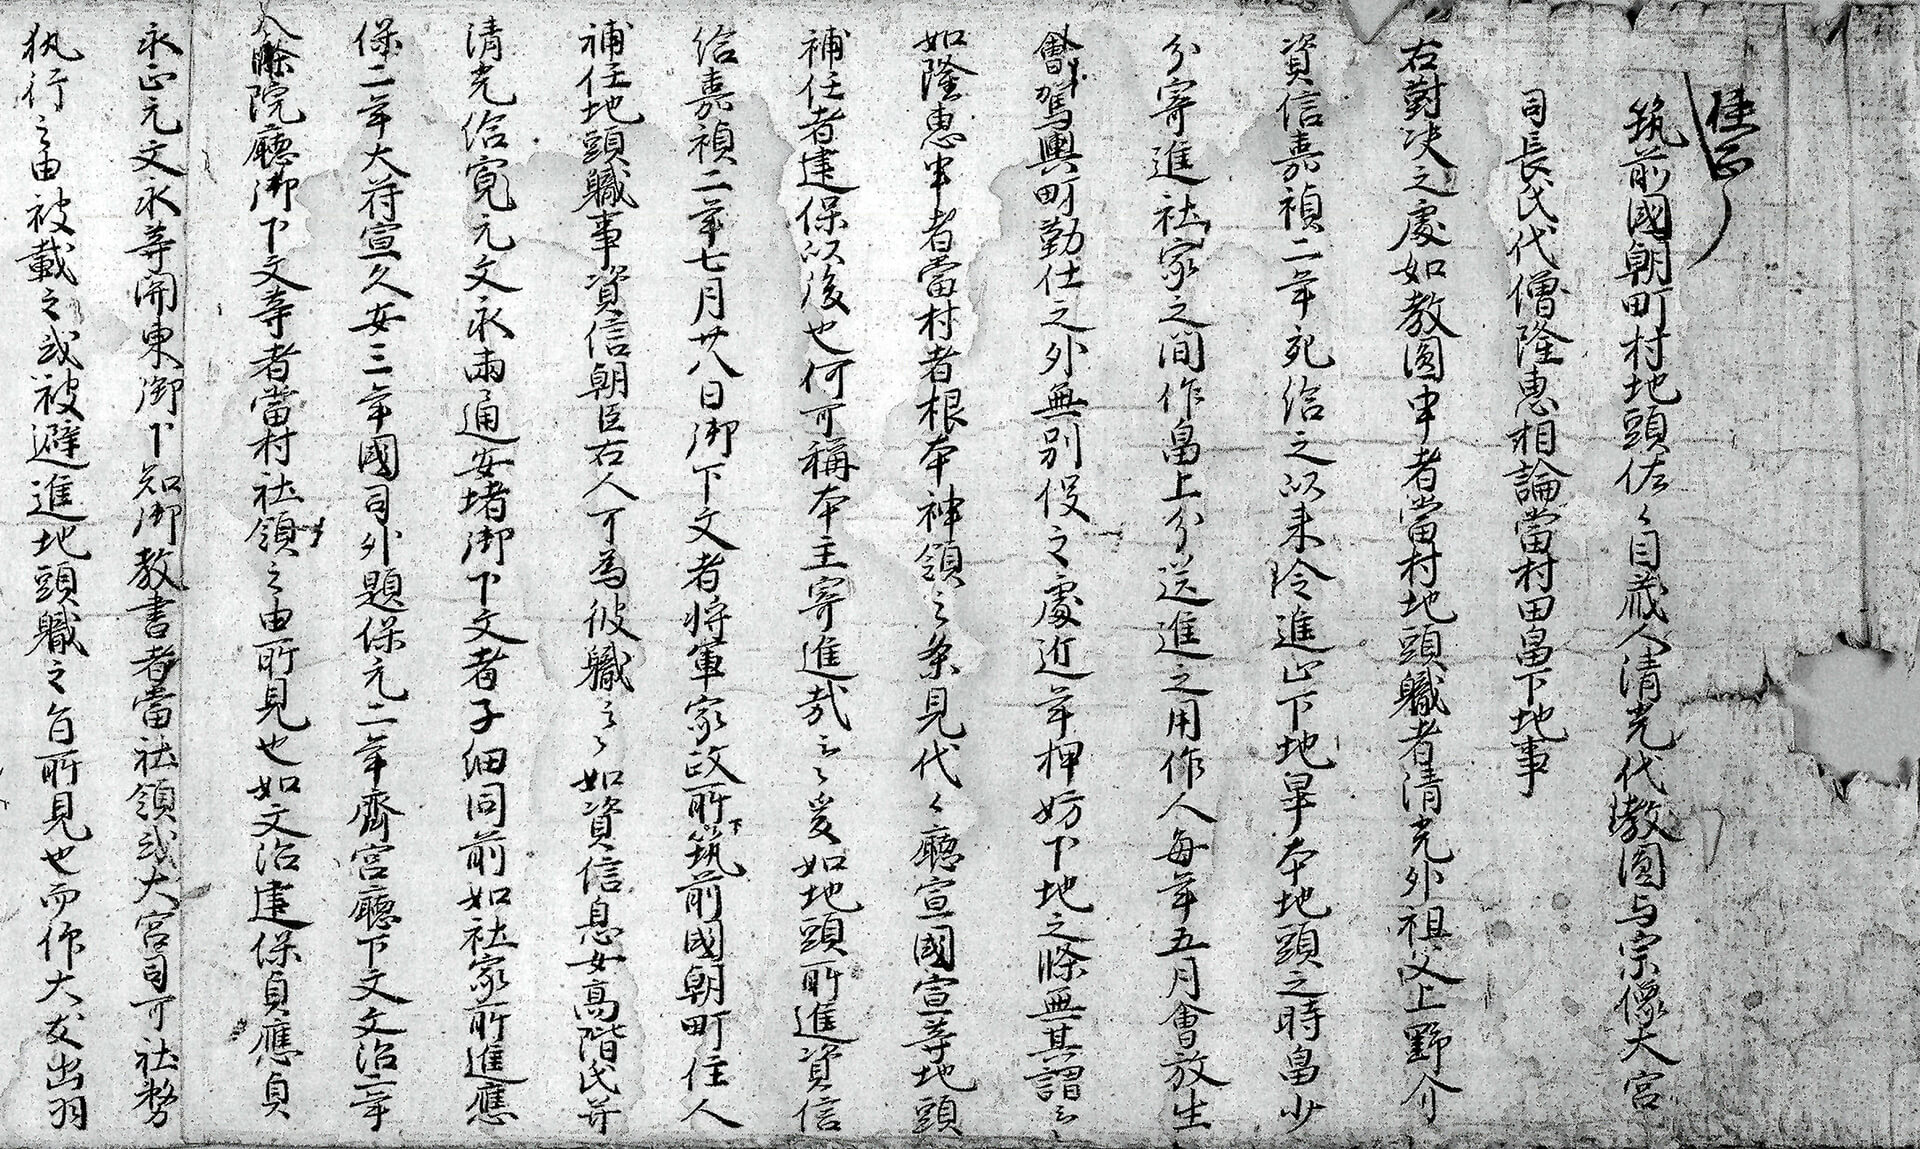 筑前國朝町村地頭佐々目蔵人清光代教圓与宗像大宮
司長氏代僧隆恵相論當村田畠下地事
右對决之處如教圓申者當村地頭職者清光外祖父上野介
資信嘉禎二年死給之以来令進止下地畢本地頭之時畠少
分寄進社家之間作畠上分送進之用作人毎年五月會放生
會駕輿町勤仕之外無別役之處近年押妨下地之條無其謂云々
如隆恵申者當村者根本神領之条見代々廳宣國宣等地頭
補任者建保以後也何可稱本主寄進哉云々爰如地頭所進資信
給嘉禎二年七月廿八日御下文者将軍家政所下筑前國朝町住人
補任地頭職事資信朝臣右人可為彼職云々如資信息女高階氏并
清光給寛元文永両通安堵御下文者子細同前如社家所進應
保二年大府宣久安三年國司外題保元二年齊宮廳下文文治二年
八條院廳御下文等者當村社領之由所見也如文治建保貞應貞
永正元文永等関東御下知御教書者當社領或大宮司可社務
執行之由被載之或被避進地頭職之旨所見也而仰大友出羽